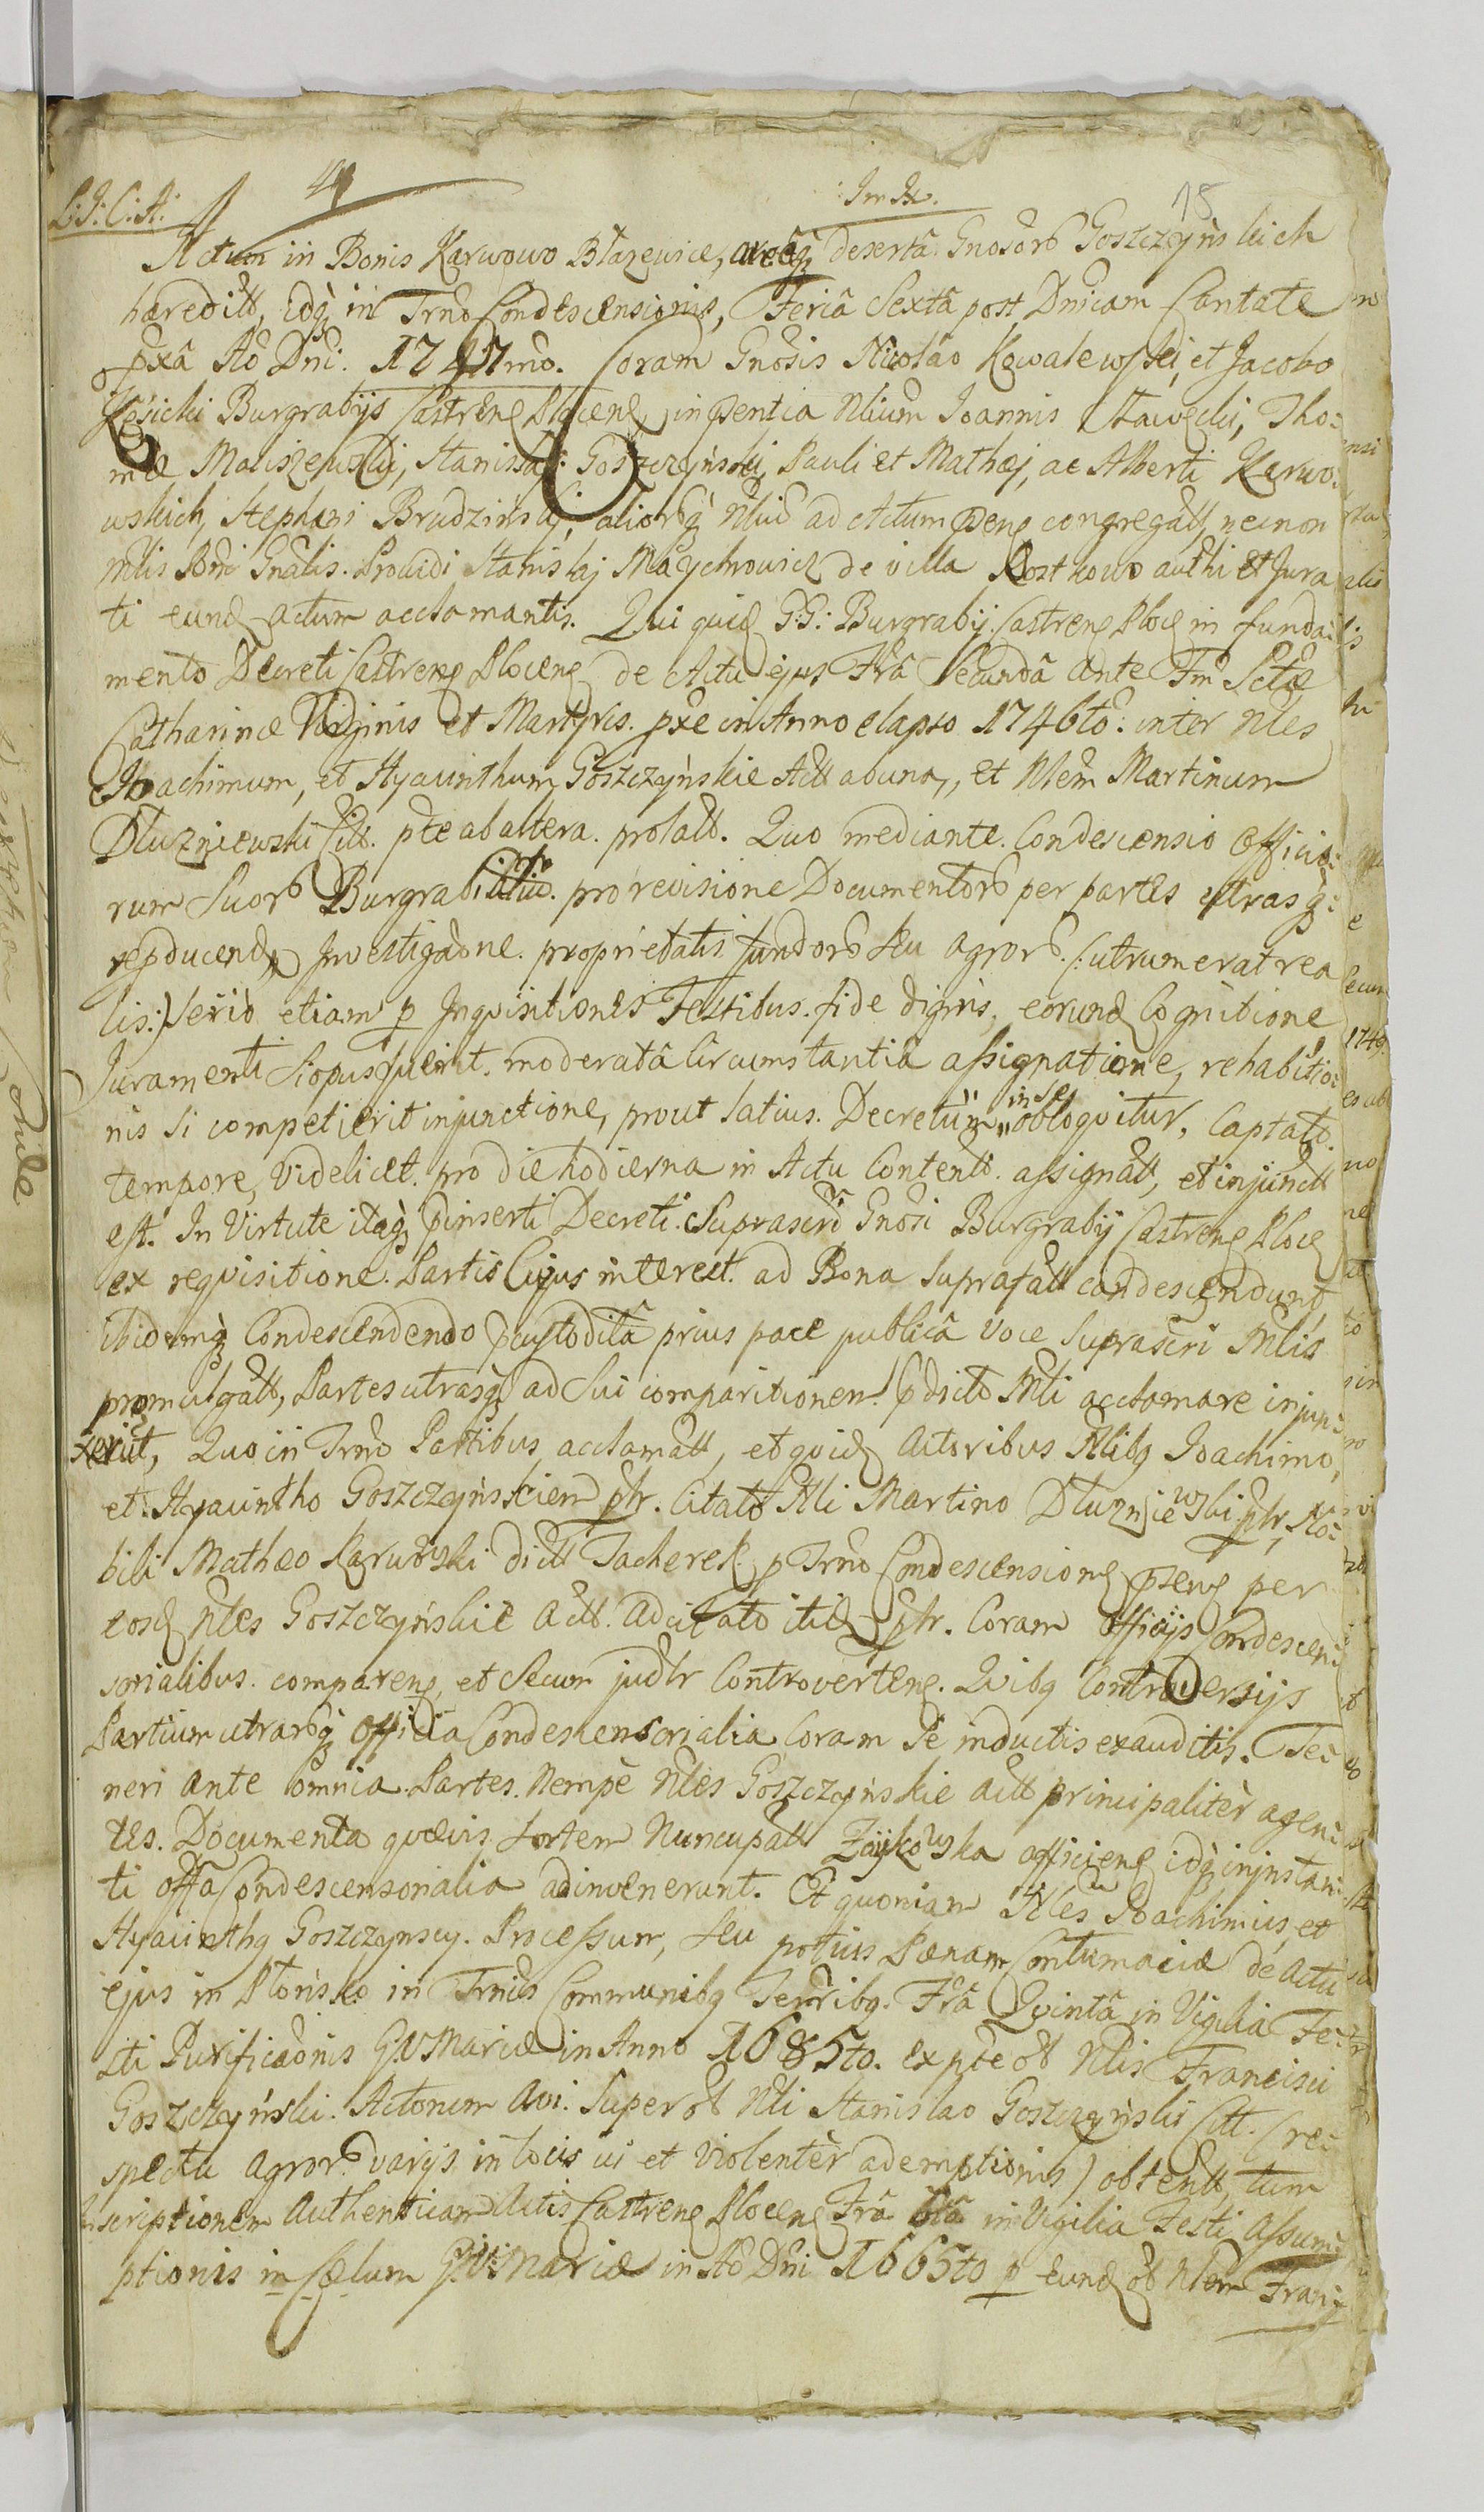 L: J: C: A:
Im Ix.
18
Actum in Bonis Karwowo Błazewice, areâq̨ desertâ Gnosorô Goszczyńskich
hæreditt, idq̨ in Trnô Condescensionis, Feriâ Sextâ post Dnicam Cantate
pxâ Aô Dni. 1747mo. Coram Gnosis Nicolao Kowalewski, et Jacobo
Kosicki Burgrabijs Castreng Płoceng in pentia Nlium Joannis Stawecki, Tho-
mæ Maliszewski, Stanislai Goszczyński, Pauli et Mathæj, ac Alberti Karwo-
wskich, Stephani Brudziński, aliorôq̨ Nliû ad Actum pseng congregatt, necnon
Mlis Rni Gnalis. Providi Stanislaj Maychrowicz de villa Rostkowo authi et Jura
ti eund actum acclamantis. Qui quid G:G: Burgrabij Castreng Ploc in funda-
mento Decreti Castreng Ploceng de Actu ejus Frâ Secundâ ante Fm Sctæ
Catharinæ Virginis et Martyris. pxe in Anno elapso 1746tô: inter Nles
Joachimum, et Hyacinthum Goszczyńskie Actt abuna, et Nlem Martinum
Dłuzniewski Citt. pte ab altera. prolatt. Quo mediante. Condescensio Officio-
rum Suorô Burgrabialiû. pro revisione Documentorô per partes utrasq̨:
repducend, Investigaône. proprietatis fundorô seu agrorô. (: utrum erat rea
lis:) seriò etiam p Inquisitiones Testibus. fide dignis, eorund Cognitione
Juramenti si opus fuerit. moderatâ Circumstantiâ assignatione, rehabitio-
nis si competierit injunctione, prout latius. Decretum in se obloquitur, Captatô.
tempore, videlicet. pro die hodierna in Actu Contentô. assignatt, et injunctt
est. In Virtute itaq̨ pinserti Decreti. Suprascri Gnosi Burgrabij Castreng Ploc
ex requisitione. Partis Cujus interest. ad Bona suprafatt condescendunt,
ibidemq̨ Condescendendo pcustoditâ prius pace publicâ voce suprascri Mlis
promulgatt, Partes utrasq̨ ad sui comparitionem pdicto Mli acclamare injun-
xerût, Quo in Trnô Partibus acclamatt, et quid Actoribus Nlibq Joachimo,
et Hyacintho Goszczyńskiem ptr. Citatô Nli Martino Dłuzniewski ptr, No-
bili Mathæo Karwowski dictt Tacherek p Trnô Condescensiong pseng per
eosd Nles Goszczyńskie Actt. adcitatô itid ptr. Coram Officijs Condescen-
sorialibus. compareng, et Secum judlr Controverteng. Quibq Controversijs
Partium utrarôq̨ Officia Condescensorialia Coram se inductis exauditis. Te-
neri ante omnia. Partes. Nempè Nles Goszczyńskie Actt principalitèr agen-
tes. Documenta quævis. Sortem Nuncupatt Zaykowska afficieng idq̨ in instan-
ti offa Condescensorialia adinvenerunt. Et quoniam Nles Joachimus, et
Hyacinthq Goszczynscy. Processum, seu potius Pænam Contumaciæ de Actu
ejus in Płońsko in Trnis Communibq Terribq. Frâ Quintâ in Vigilia Fe-
sti Purificaônis GVMariæ in Anno 1685to. ex pte ob Nlis Francisci
Goszczyński. Actorum Avi. Super ob Nli Stanislao Goszczyński Citt. (re-
spectu agrorô varijs in locis vi et violentèr ademptionis) obtentt, tum
Inscriptionem Authenticam Actis Castreng Płoceng Frâ 6tâ in Vigilia Festi Assum-
ptionis in Cælum GVMariæ in Aô Dni 1665to p eund ob Nlem Fran-